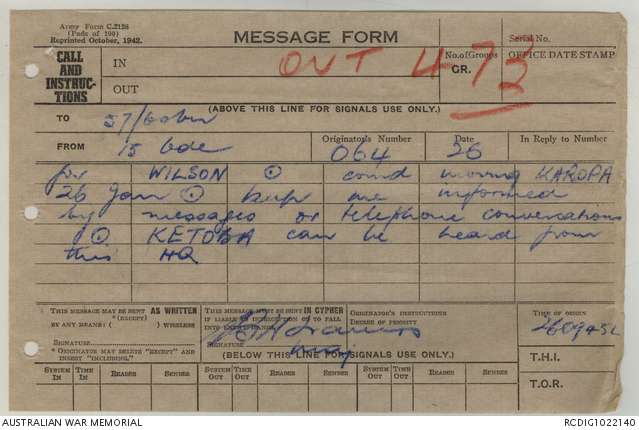 Army Form C.2128
(Pads of 100)
Reprinted October, 1942.
MESSAGE FORM
Serial No.
CALL
AND
INSTRUC-
TIONS
IN
OUT
OUT 473
No. of Groups
GR.
OFFICE DATE STAMP
(ABOVE THIS LINE FOR SIGNALS USE ONLY.)
TO 57/60 Bn
FROM 15 Bde
Originator's Number
064
Date
26
In Reply to Number
for WILSON ⊙ comd moving KAROPA
26 Jan ⊙ keep me informed
by messages or telephone conversations
⊙ KETOBA can be heard from
this HQ
THIS MESSAGE MAY BE SENT AS WRITTEN
(EXCEPT)
BY ANY MEANS ( ) WIRELESS
SIGNATURE
* ORIGINATOR MAY DELETE "EXCEPT" AND
INSERT "INCLUDING."
THIS MESSAGE MUST BE SENT IN CYPHER
IF LIABLE TO INTERCEPTION OR TO FALL
INTO ENEMY HANDS.
SIGNATURE
Maj
ORIGINATOR'S INSTRUCTIONS
DEGREE OF PRIORITY
TIME OF ORIGIN
T.H.I.
T.O.R.
(BELOW THIS LINE FOR SIGNALS USE ONLY.)
SYSTEM IN
TIME IN
READER
SENDER
SYSTEM OUT
TIME OUT
READER
SENDER
SYSTEM OUT
TIME OUT
READER
SENDER
AUSTRALIAN WAR MEMORIAL
RCDIG1022140